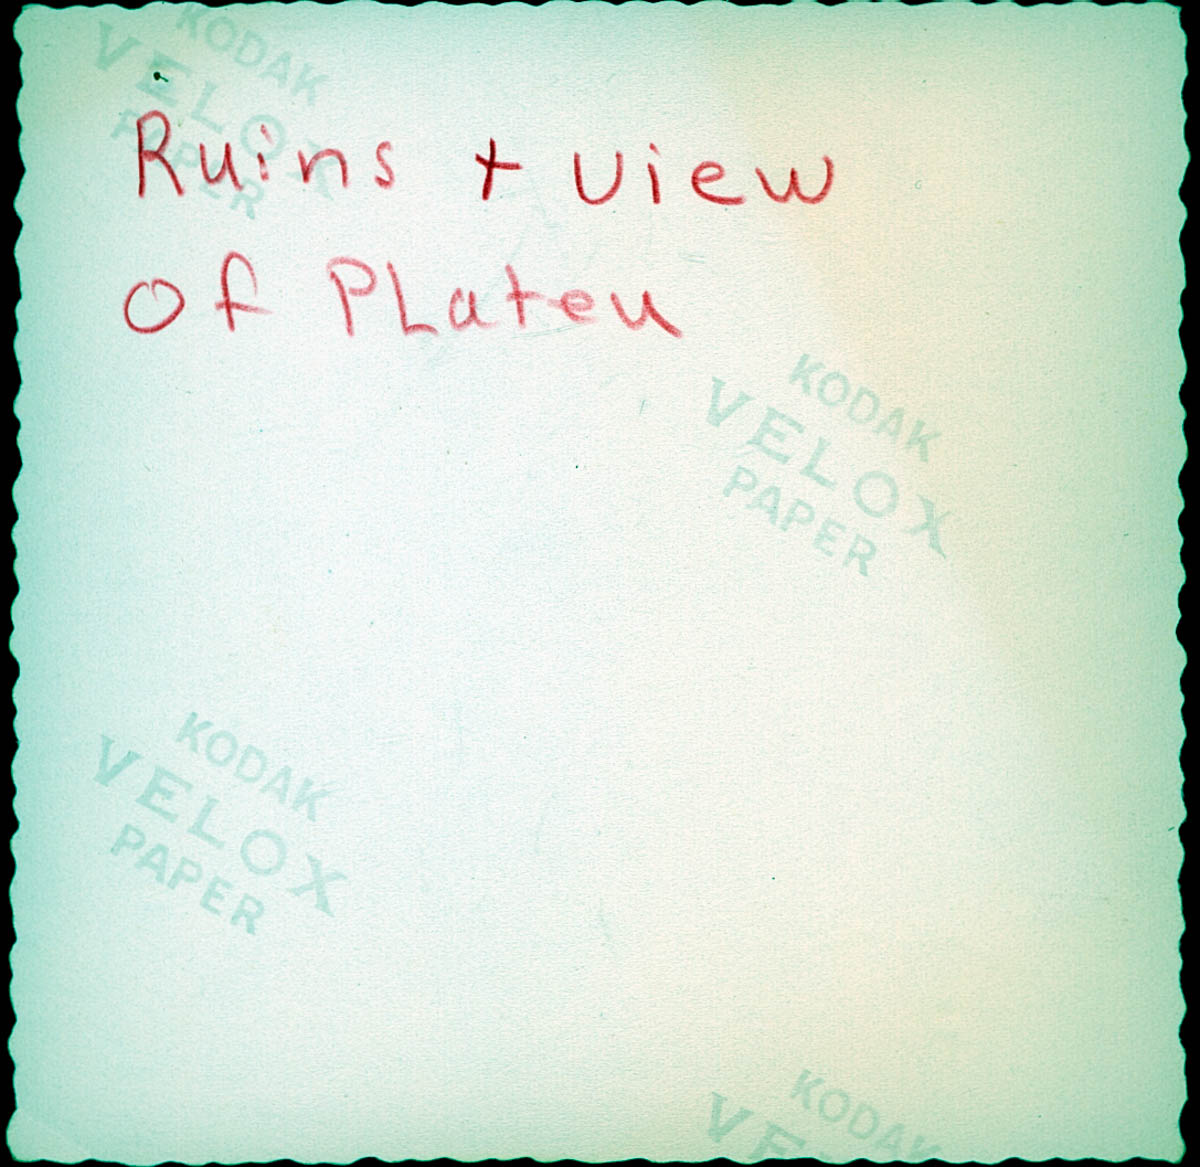 KODAK
VELOX
PAPER
Ruins + view
of PLateu
KODAK
VELOX
PAPER
KODAK
VELOX
PAPER
KODAK
VE